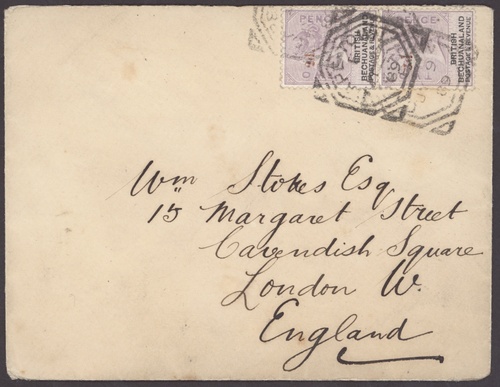 PENCE
PENCE
BRITISH
BECHUANALAND
POSTAGE & REVENUE
BRITISH
BECHUANALAND
POSTAGE & REVENUE
Wm Stokes Esq
15 Margaret Street
Cavendish Square
London W.
England